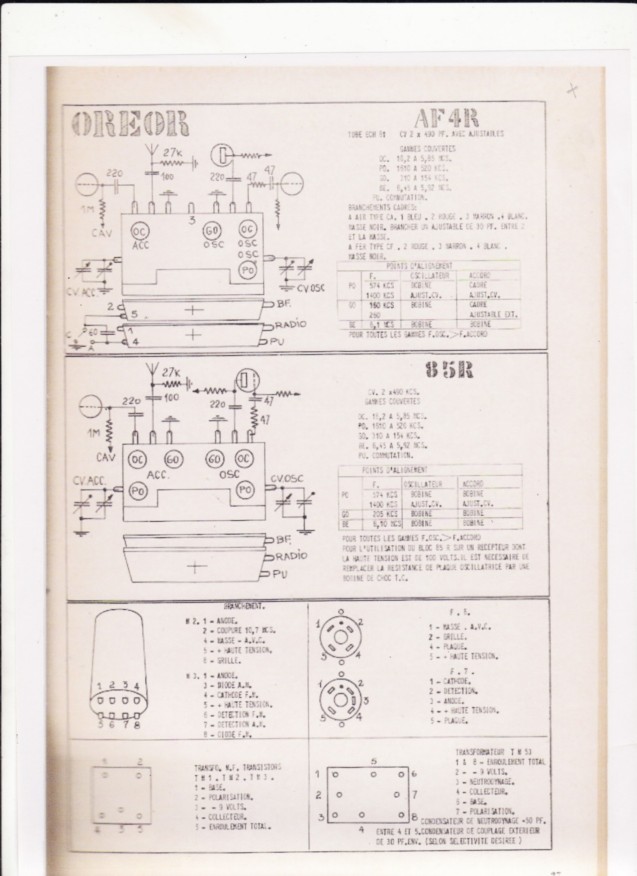 OREOR
AF4R
TUBE ECH 81 CV 2 x 490 PF. AVEC AJUSTABLES
GAMMES COUVERTES
PO. 1650 A 520 KCS.
GO. 310 A 154 KCS.
PU. COMMUTATION.
BRANCHEMENTS CADRES:
A AIR TYPE CA, 1 BLEU, 2 ROUGE, 3 MARRON, 4 BLANC,
MASSE NOIR, BRANCHER UN AJUSTABLE DE 30 PF. ENTRE 2
ET LA MASSE.
A FER TYPE CF, 2 ROUGE, 3 MARRON, 4 BLANC,
MASSE NOIR.
POINTS D'ALIGNEMENT
F. OSCILLATEUR ACCORD
PO 574 KCS BOBINE CADRE
1400 KCS AJUST.CV. AJUST.CV.
GO 160 KCS BOBINE CADRE
260 AJUSTABLE EXT.
BE 6,1 MCS BOBINE BOBINE
POUR TOUTES LES GAMMES F.OSC.>F.ACCORD
27K
220
100
220
47
47
1M
CAV
3
OC
GO
OC
ACC
OSC
OSC
OSC
PO
CV.ACC.
CV.OSC
2
5
BF.
C
60
A
1
4
RADIO
PU
85R
CV. 2 x490 KCS.
GAMMES COUVERTES
PU. COMMUTATION.
POINTS D'ALIGNEMENT
F. OSCILLATEUR ACCORD
PO 574 KCS BOBINE BOBINE
1400 KCS AJUST.CV. AJUST.CV.
GO 205 KCS BOBINE BOBINE
BE 6,10 MCS BOBINE BOBINE
POUR TOUTES LES GAMMES F.OSC.>F.ACCORD
POUR L'UTILISATION DU BLOC 85 R SUR UN RECEPTEUR DONT
LA HAUTE TENSION EST DE 100 VOLTS.IL EST NECESSAIRE DE
REMPLACER LA RESISTANCE DE PLAQUE OSCILLATRICE PAR UNE
BOBINE DE CHOC T.C.
27K
100
220
220
47
47
1M
CAV
OC
GO
GO
OC
ACC.
OSC
CV.ACC.
CV.OSC
PO
PO
BF.
RADIO
PU
BRANCHEMENT.
M 2. 1 - ANODE.
2 - COUPURE 10,7 MCS.
4 - MASSE - A.V.C.
5 - + HAUTE TENSION.
8 - GRILLE.
M 3. 1 - ANODE.
3 - DIODE A.M.
4 - CATHODE F.M.
5 - + HAUTE TENSION.
6 - DETECTION F.M.
7 - DETECTION A.M.
8 - DIODE F.M.
1 2 3 4
5 6 7 8
1 2
5 4
1 - MASSE . A.V.C.
2 - GRILLE.
4 - PLAQUE.
5 - + HAUTE TENSION.
F . T .
1 - CATHODE.
2 - DETECTION.
3 - ANODE.
4 - + HAUTE TENSION.
5 - PLAQUE.
1 2
3
5 4
TRANSFO. M.F. TRANSISTORS
T M 1 . T M 2 . T M 3 .
1 - BASE.
2 - POLARISATION.
3 - - 9 VOLTS.
4 - COLLECTEUR.
5 - ENROULEMENT TOTAL.
1 2
4 3 5
5
1 6
2 7
3 8
4
TRANSFORMATEUR T M 53
1 & 8 - ENROULEMENT TOTAL
2 - - 9 VOLTS.
3 - NEUTRODYNAGE.
4 - COLLECTEUR.
6 - BASE.
7 - POLARISATION.
CONDENSATEUR DE NEUTRODYNAGE =50 PF.
ENTRE 4 ET 5.CONDENSATEUR DE COUPLAGE EXTERIEUR
DE 30 PF.ENV. (SELON SELECTIVITE DESIREE )